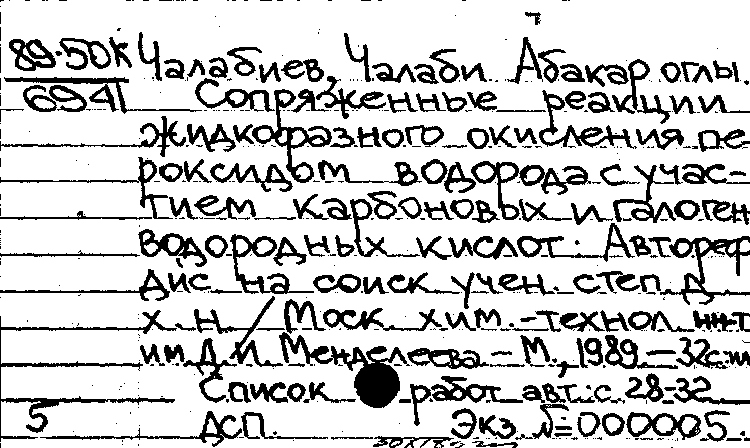 89-50К Чалабиев, Чалаби Абакар оглы.
6941 Сопряженные реакции
жидкофазного окисления пе-
роксидом водорода с учас-
тием карбоновых и галоген
водородных кислот: Автореф
дис на соиск учен. степ. д
х. н. / Моск. хим.-технол. ин-т
им. Д. И. Менделеева - М., 1989. - 32с.
Список работ авт.: с. 28-32
5 ДСП. Экз. №=000005.